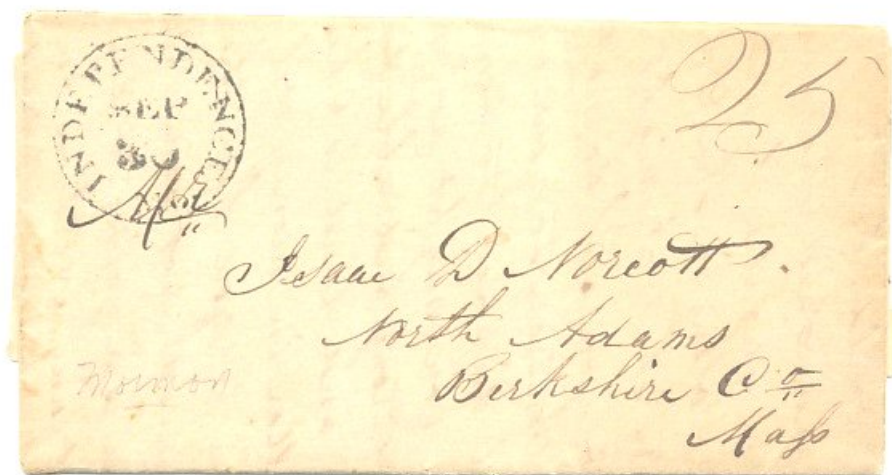 INDEPENDENCE
SEP
30
25
Isaac D Norcott
North Adams
Berkshire Co
Mass
Mormon